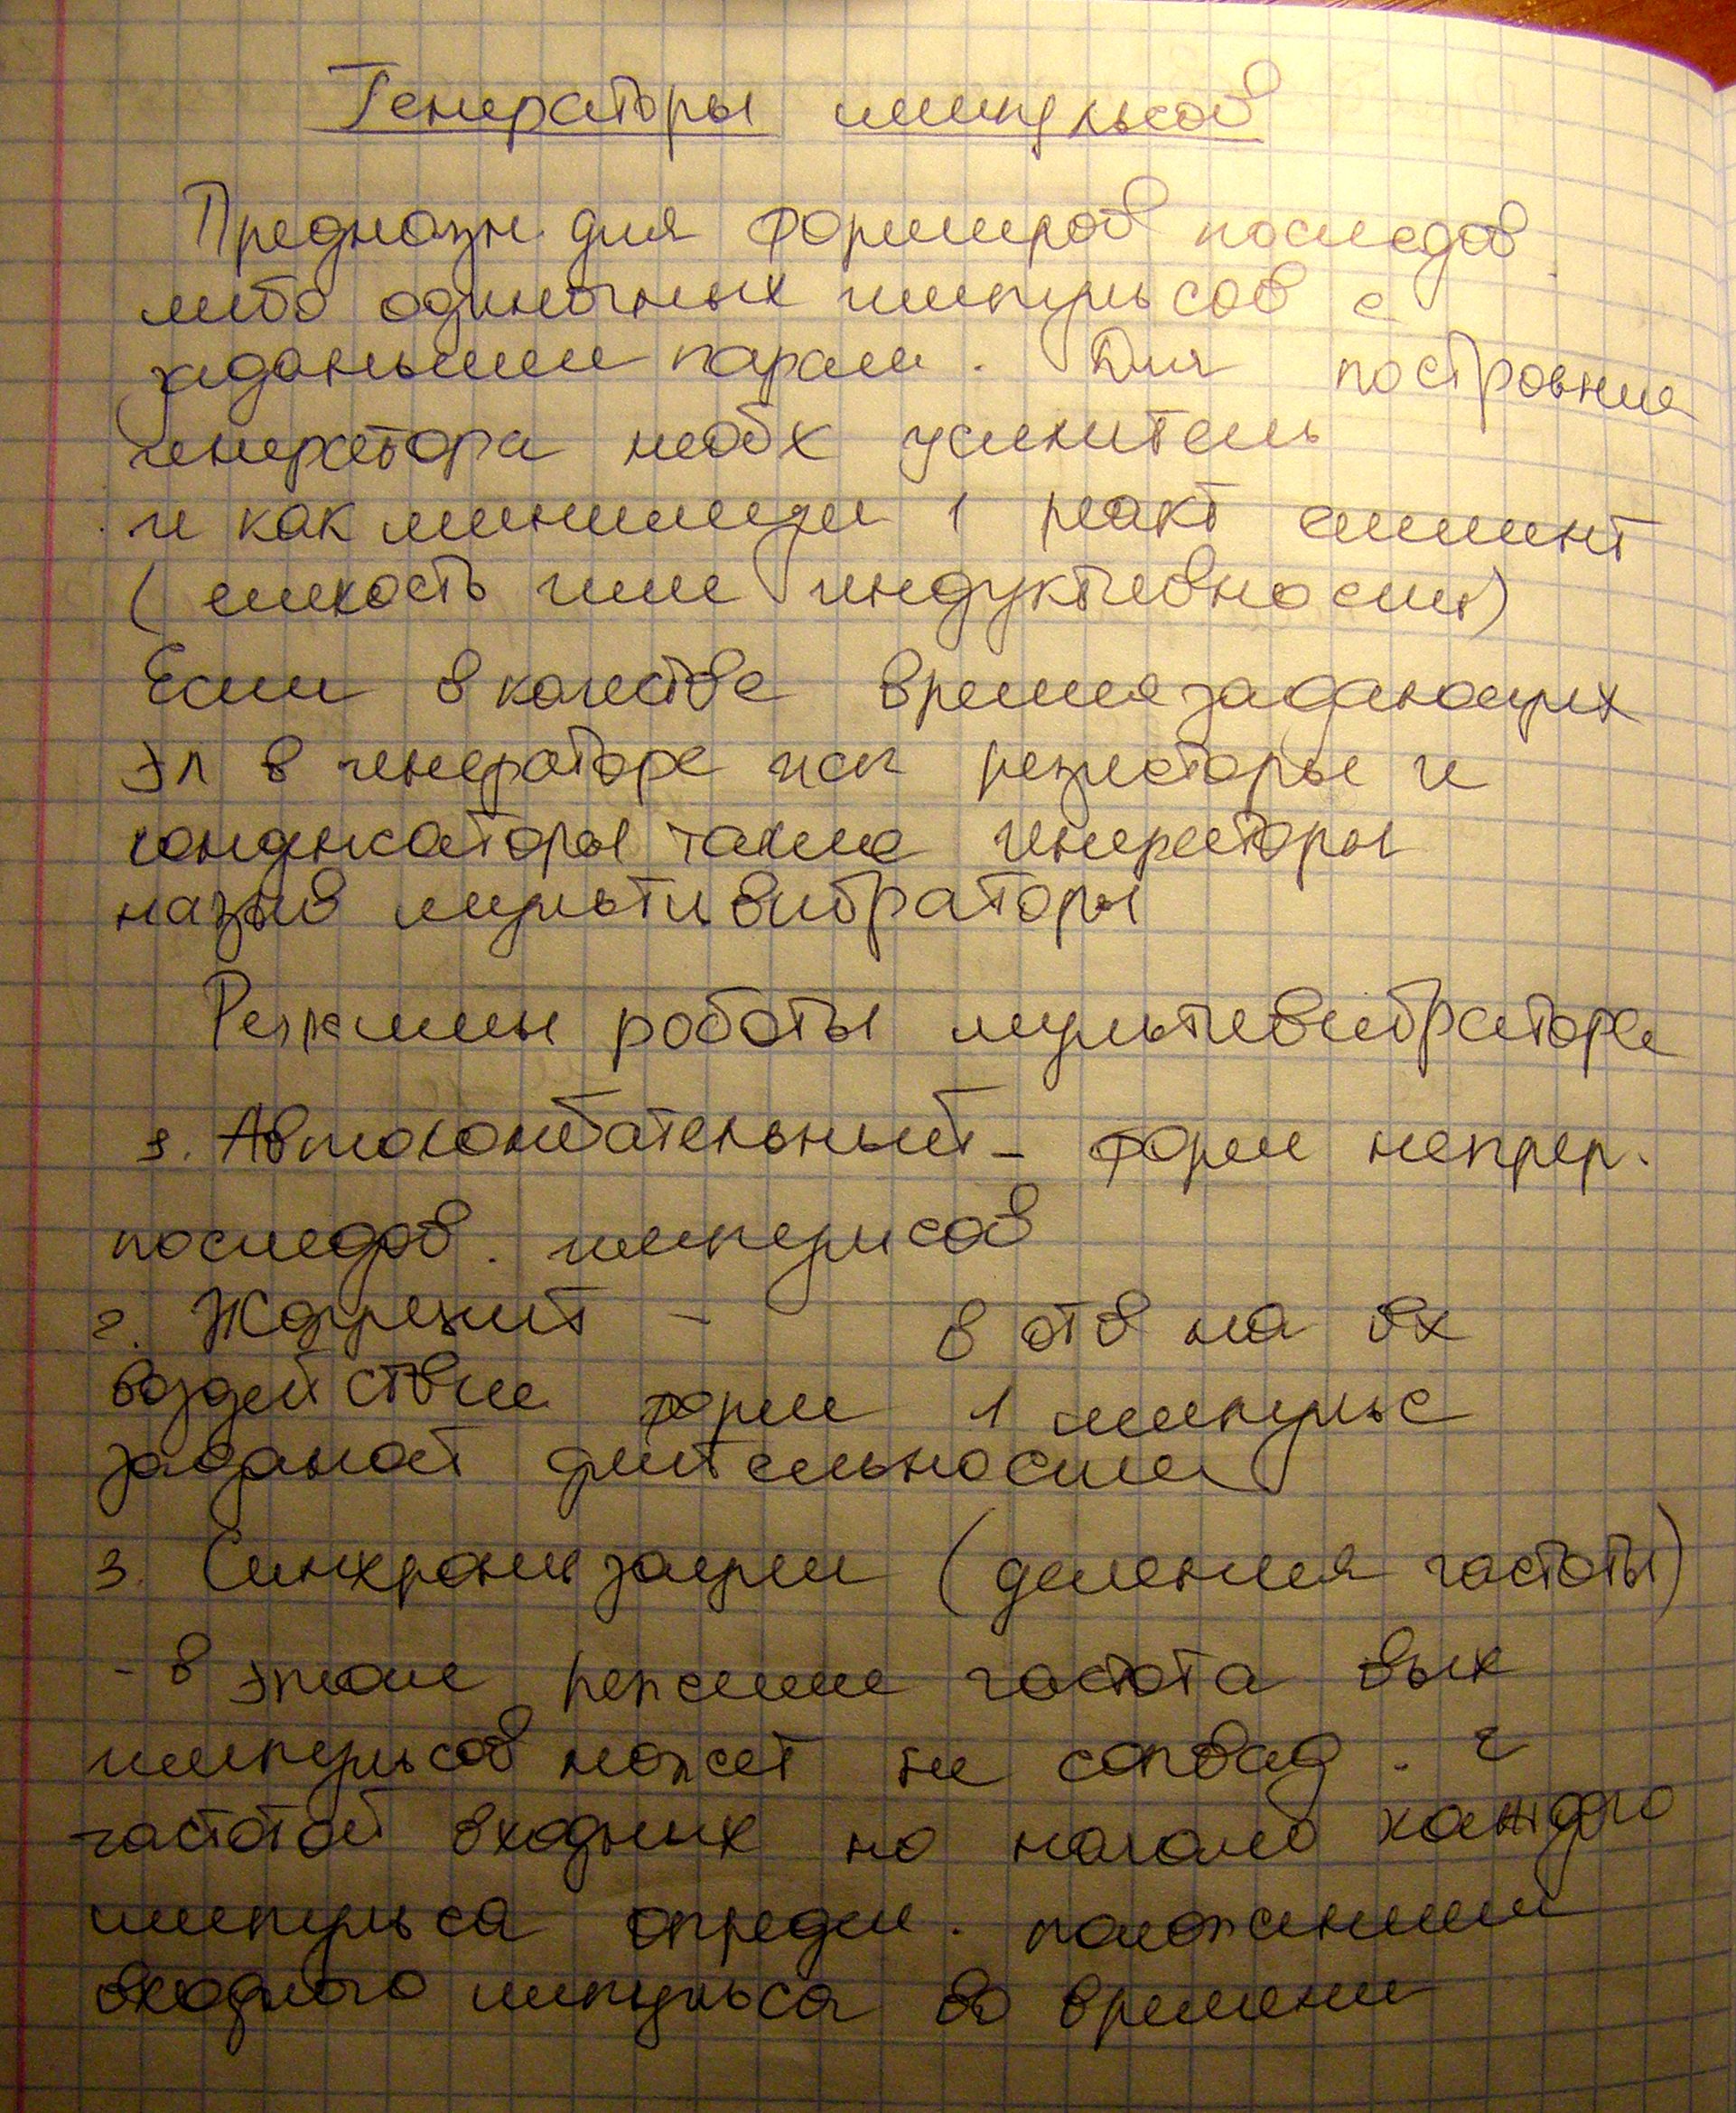 Генераторы импульсов
Предназн. для формиров последов.
либо одиночных импульсов с
заданными парам. Для построения
генератора необх усилитель
и как минимиум 1 реакт элемент
(емкость или индуктивность)
Если в качестве времязадающих
эл в генераторе исп резисторы и
конденсаторы такие генераторы
назыв мультивибраторы
Режимы работы мультивибратора
1. Автоколебательный - форм непрер.
последов. импульсов
2. Ждущий - в отв на вх
воздействие форм 1 импульс
заданной длительности
3. Синхронизации (деления частоты)
- в этом режиме частота вых
импульсов может не совпад. с
частотой входных но начало каждого
импульса определ. положением
входного импульса во времени